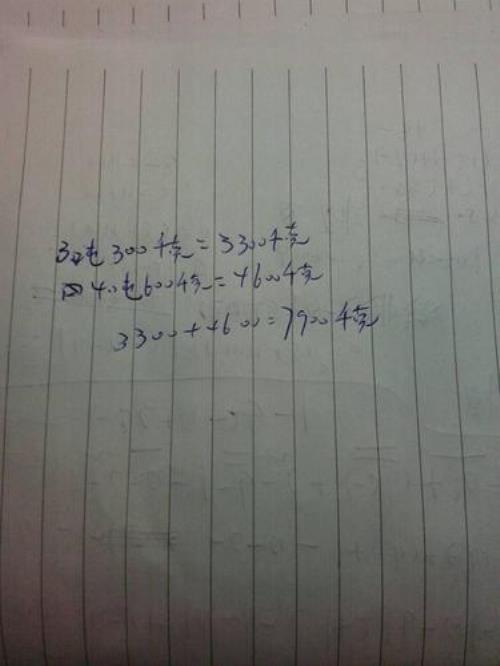 3吨300千克=3300千克
4吨600千克=4600千克
3300+4600=7900千克